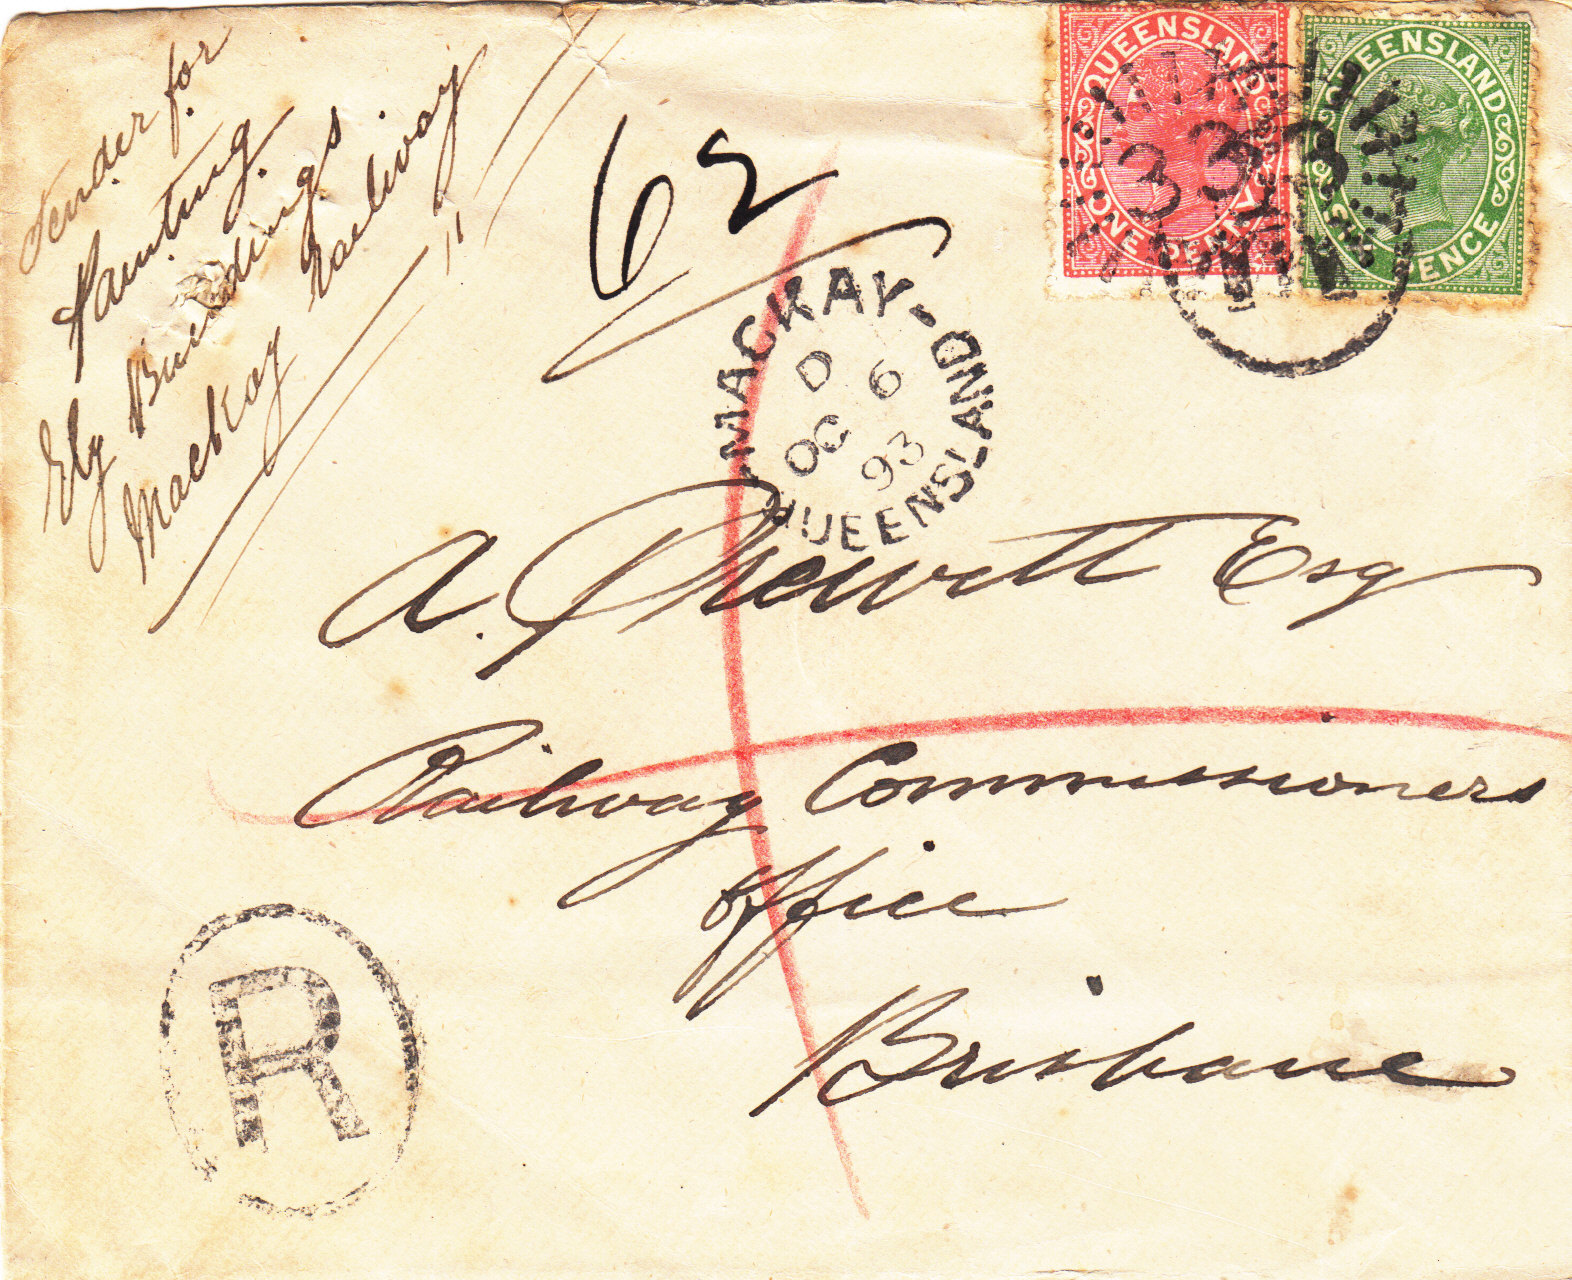 Tender for
Painting
Stn Buildings.
Mackay Railway
62
QUEENSLAND
ONE PENNY
QUEENSLAND
PENCE
333
MACKAY-
QUEENSLAND
D 6
OC
93
A. Prewett Esq
Railway Commissioners
Office
Brisbane
R